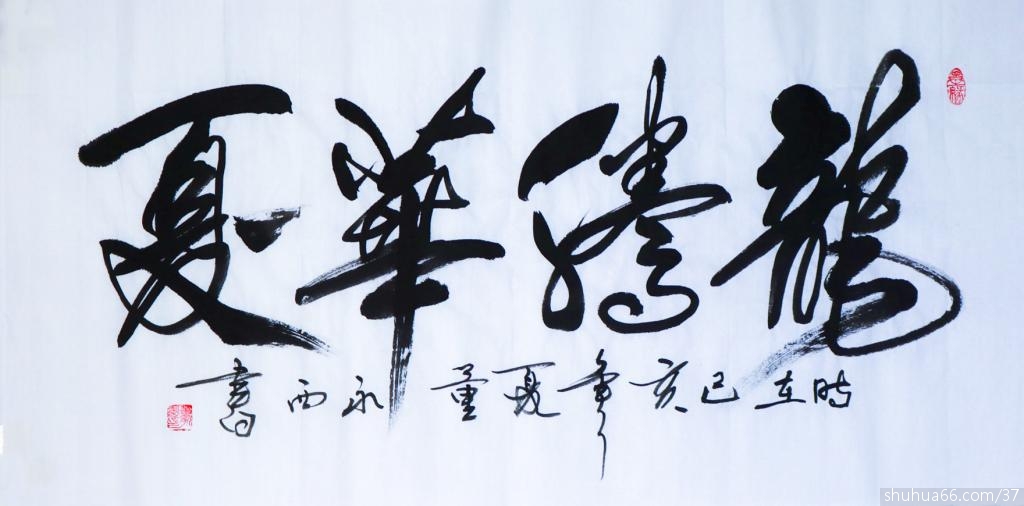 龍騰華夏
時在己亥年夏永西書
shuhua66.com/37